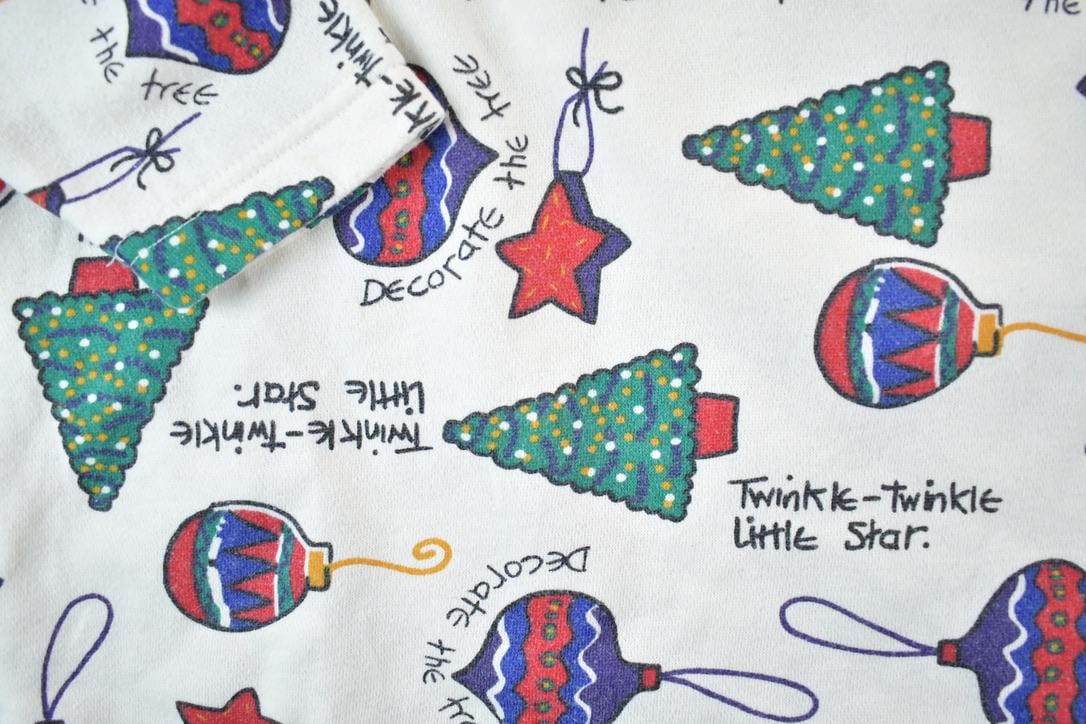 the
tree
Twinkle
kle-twinkle
The
Decorate the tree
Twinkle-Twinkle
Little Star.
Twinkle-Twinkle
Little Star.
Decorate the